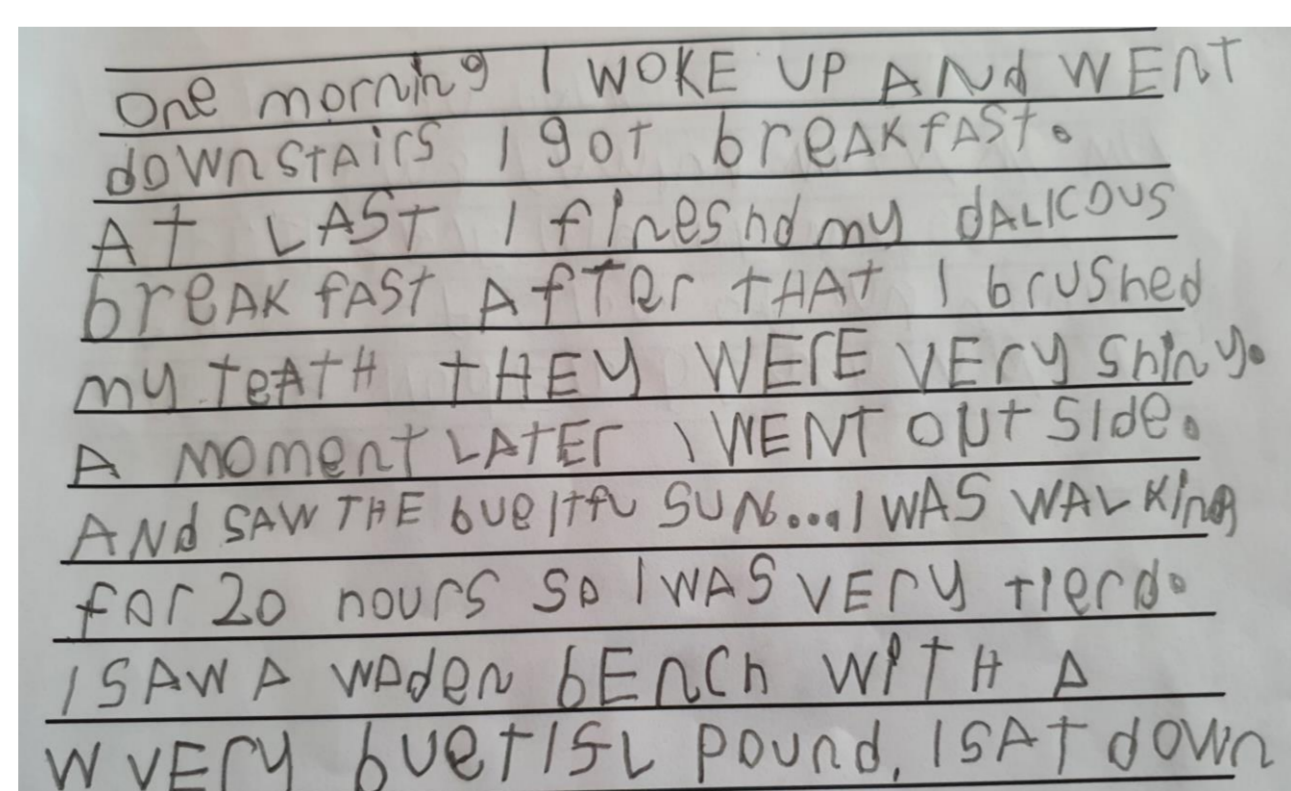 One morning I WOKE UP AND WENT
downstAirs I got breAKfASt.
At LASt I fineshd my dALICOUS
breAKfASt AfTer tHAt I brushed
my teAtH tHEY WERE VERY shiny.
A moment LAtEr I WENT OUt SIde.
ANd SAW THE bueItfu SUN...I WAS WALKing
for 20 hours so I WAS VERY tierd.
I SAW A WAden bENCh WITH A
W VERY buetISL pound. I SAT down